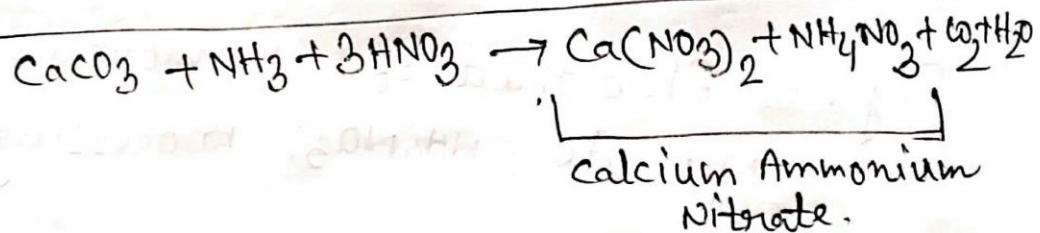 CaCO3 + NH3 + 3HNO3 → Ca(NO3)2 + NH4NO3 + CO2 + H2O
Calcium Ammonium
Nitrate.